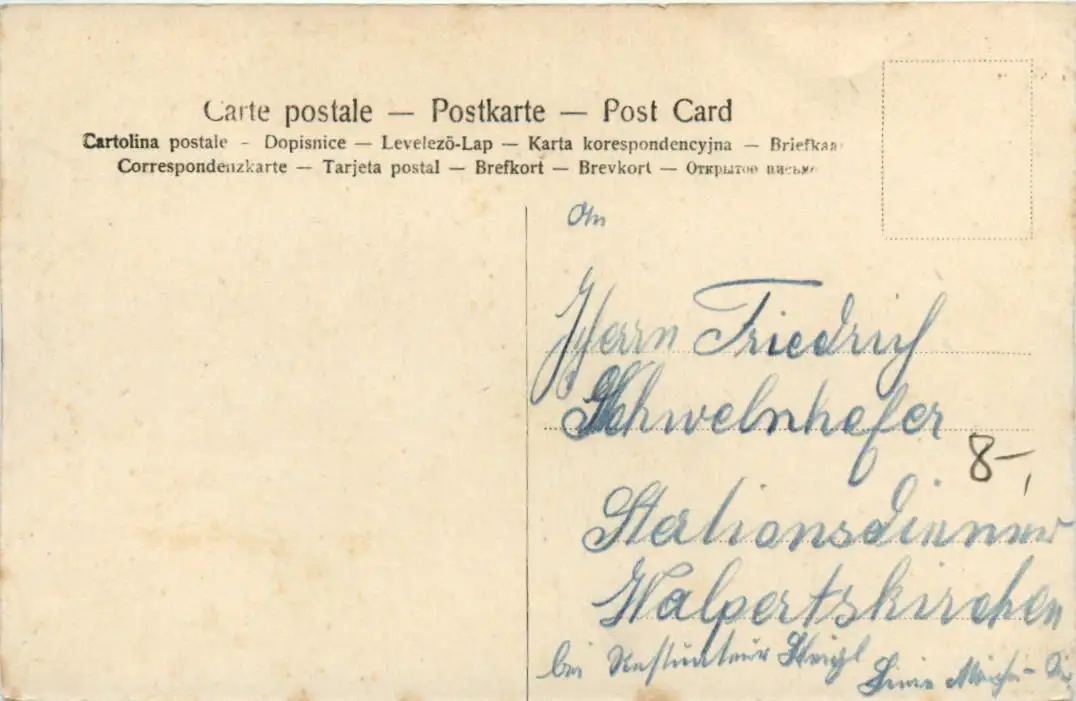 Carte postale — Postkarte — Post Card
Cartolina postale - Dopisnice — Levelezö-Lap — Karta korespondencyjna — Briefkaa
Correspondenzkarte — Tarjeta postal — Brefkort — Brevkort — Открытое письмо
An
Herrn Friedrich
Schwelnhofer
8-,
Stationsdiener
Walpertskirchen
bei
Linie